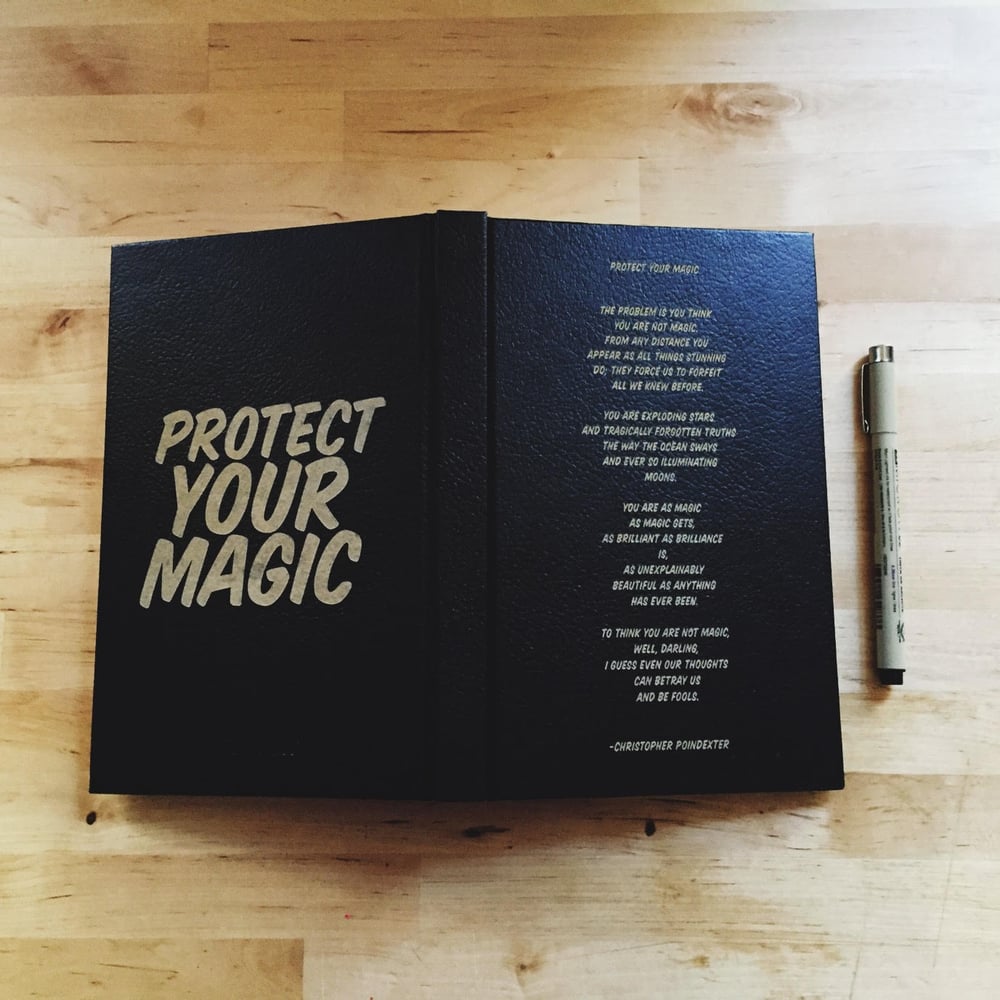 PROTECT
YOUR
MAGIC
PROTECT YOUR MAGIC
THE PROBLEM IS YOU THINK
YOU ARE NOT MAGIC.
FROM ANY DISTANCE YOU
APPEAR AS ALL THINGS STUNNING
DO; THEY FORCE US TO FORFEIT
ALL WE KNEW BEFORE.
YOU ARE EXPLODING STARS
AND TRAGICALLY FORGOTTEN TRUTHS
THE WAY THE OCEAN SWAYS
AND EVER SO ILLUMINATING
MOONS.
YOU ARE AS MAGIC
AS MAGIC GETS,
AS BRILLIANT AS BRILLIANCE
IS,
AS UNEXPLAINABLY
BEAUTIFUL AS ANYTHING
HAS EVER BEEN.
TO THINK YOU ARE NOT MAGIC,
WELL, DARLING,
I GUESS EVEN OUR THOUGHTS
CAN BETRAY US
AND BE FOOLS.
-CHRISTOPHER POINDEXTER